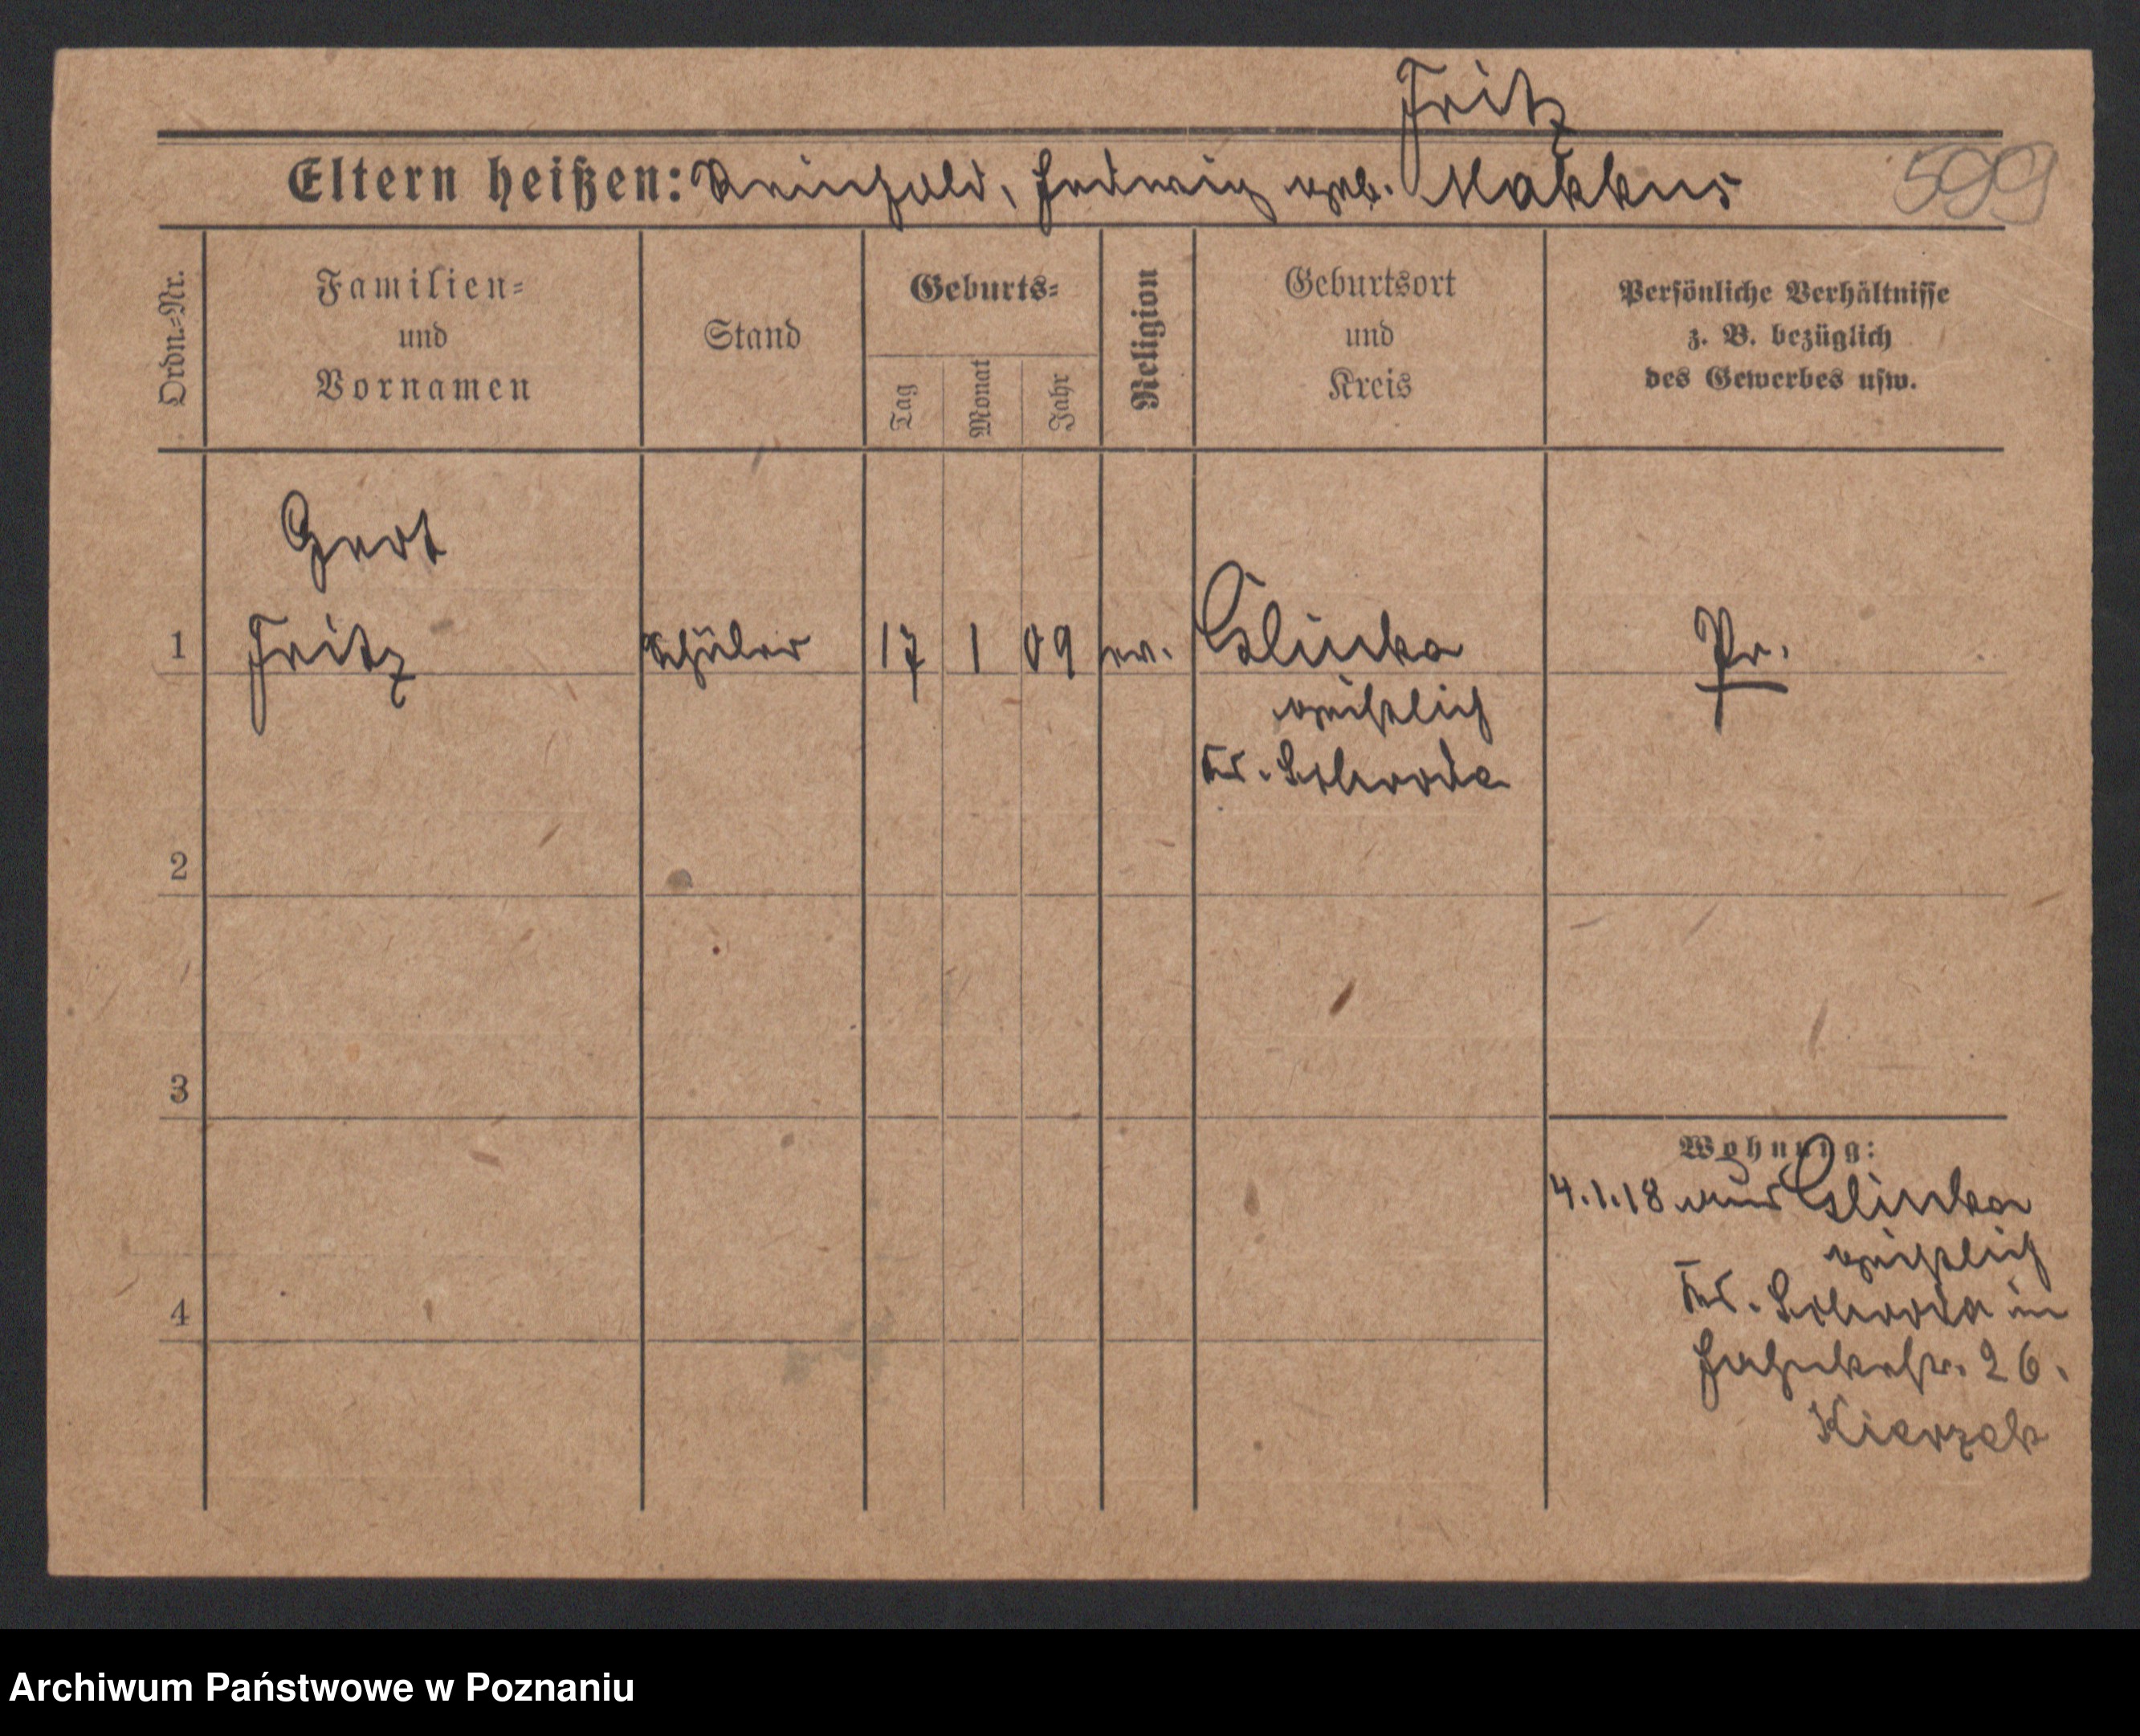 Fritz
Eltern heißen: Reinhold, Hedwig geb. Makkus
599
Ordn.=Nr.
Familien=
und
Vornamen
Stand
Geburts=
Tag
Monat
Jahr
Religion
Geburtsort
und
Kreis
Persönliche Verhältnisse
z. B. bezüglich
des Gewerbes usw.
Gert
1 Fritz Schüler 17 1 09 ev. Glinka Pr.
geistlich
Kr. Schroda
2
3
4
Wohnung:
4.1.18 aus Glinka
geistlich
Kr. Schroda in
26.
Kierzek
Archiwum Państwowe w Poznaniu